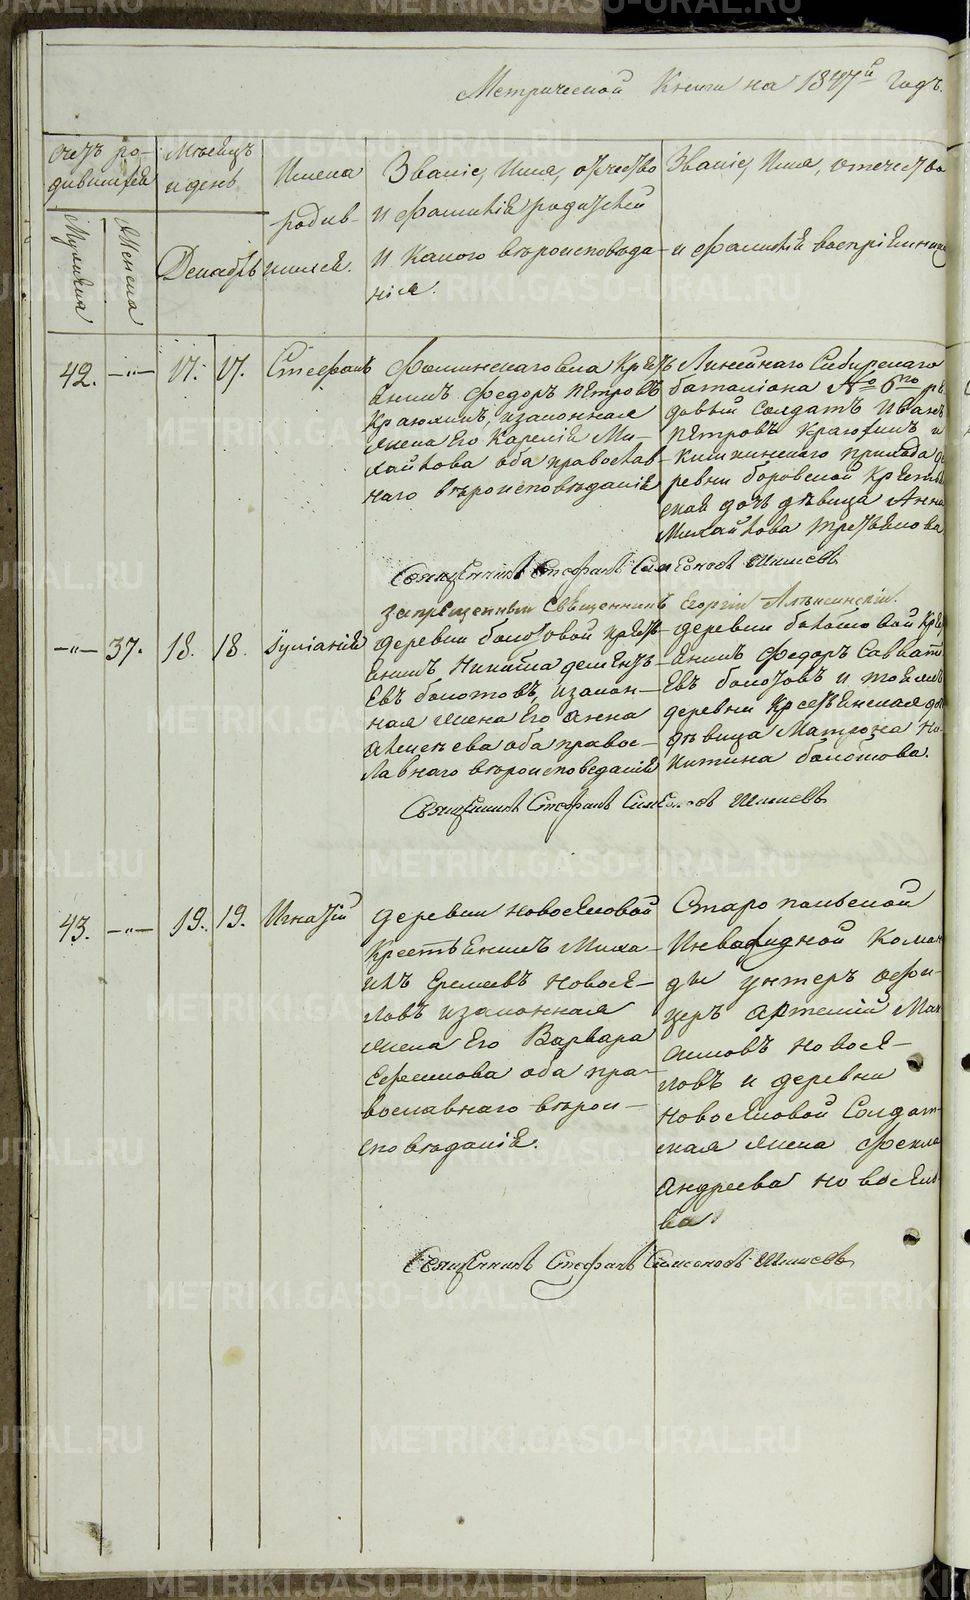 Метрической Книги на 1847й Годъ.
Счетъ ро-
дившихся
Мужеска
Женска
Мѣсяцъ
и день
Декабрь
Имена
родив-
шихся.
Званіе, Имя, отчество
и фамиліи родителей
и какого вѣроисповѣда-
нія.
Званіе, Имя, отечество
и фамилія воспріемник
42. —"— 17. 17. Стефанъ
Фоминскаго села Крест-
янинъ Федоръ Петровъ
законная
жена его Ми-
хайлова оба православ-
наго вѣроисповѣданія
Линейнаго Сибирскаго
баталіона № 6го ря-
довый солдатъ Иванъ
Петровъ и
прихода де-
ревни боровской Крестьян
ская дочь дѣвица Анна
Михайлова
Священникъ Стефанъ Симеоновъ
запрещенный Священникъ Георгій
—"— 37. 18. 18. Іуліанія
деревни болотовой крест-
янинъ Никита Дементь-
евъ болотовъ, и закон-
ная жена его Анна
Алексѣева оба правос-
лавнаго вѣроисповеданія
деревни болотовой Крес
янинъ Федоръ Савват
евъ болотовъ и тоя жъ
деревни Крестьянская до
дѣвица Матрона Ни-
китина болотова.
Священникъ Стефанъ Симеоновъ
43. —"— 19. 19. Игнатій
деревни новоселовой
Крестьянинъ Миха-
илъ Еремѣевъ новосе-
ловъ и законная
жена Его Варвара
Ефимова оба пра-
вославнаго вѣрои-
сповѣданія.
Старопольской
Инвалидной Коман
ды унтеръ офи-
церъ Артемій Мак
симовъ новосе-
ловъ и деревни
новоселовой Солдат-
ская жена Фекла
Андреева новосело-
ва
Священникъ Стефанъ Симеоновъ
METRIKI.GASO-URAL.RU